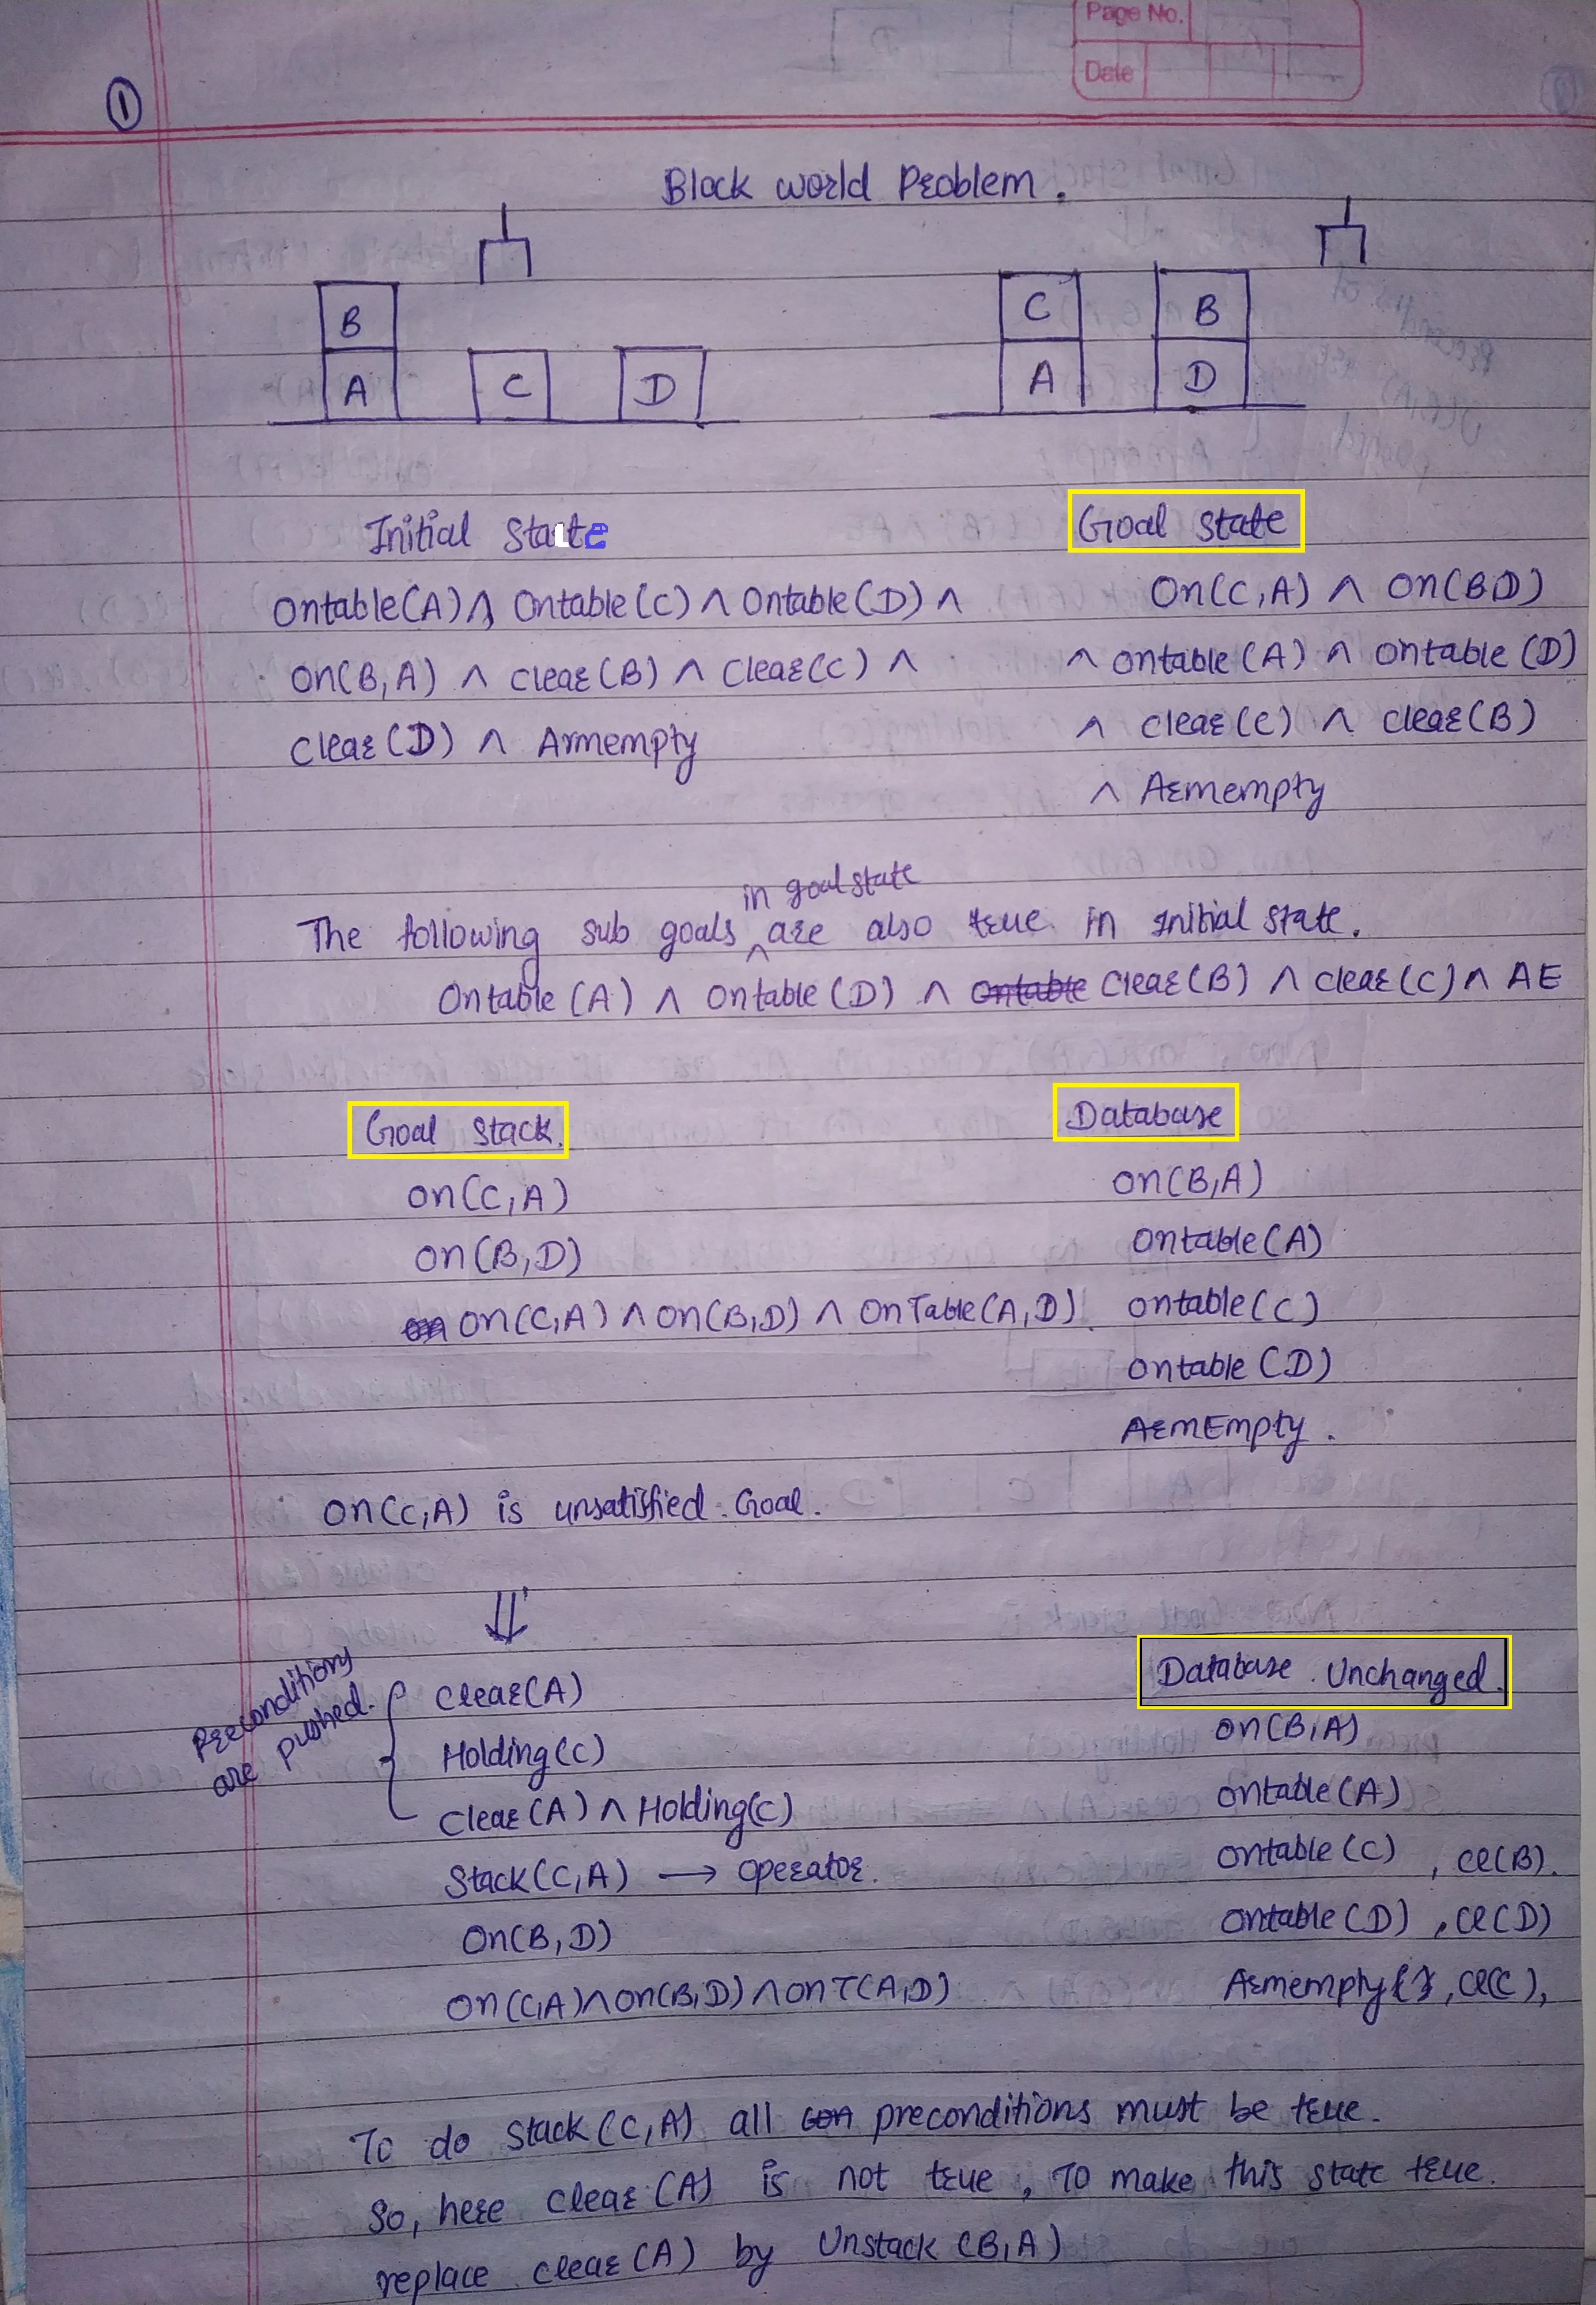 Page No.
Date
1
Block world Problem.
B
A
C
D
C
A
B
D
Initial State
Goal state
Ontable(A) ∧ Ontable(C) ∧ Ontable(D) ∧
On(B,A) ∧ clear(B) ∧ Clear(C) ∧
Clear(D) ∧ Armempty
On(C,A) ∧ On(BD)
∧ ontable(A) ∧ ontable(D)
∧ clear(C) ∧ clear(B)
∧ Armempty
in goal state
The following sub goals ^ are also true in Initial state.
Ontable(A) ∧ ontable(D) ∧ ontable Clear(B) ∧ clear(C) ∧ AE
Goal stack.
on(C,A)
on(B,D)
on on(C,A) ∧ on(B,D) ∧ OnTable(A,D).
Database
on(B,A)
Ontable(A)
ontable(C)
ontable(D)
ArmEmpty.
on(C,A) is unsatisfied Goal.
⇓
Preconditions
are pushed.
Clear(A)
Holding(C)
Clear(A) ∧ Holding(C)
Stack(C,A) → operator.
On(B,D)
on(C,A) ∧ on(B,D) ∧ onT(A,D)
Database Unchanged.
on(B,A)
ontable(A)
ontable(C), cl(B).
ontable(D), cl(D)
Armempty{}, cl(C),
To do stack(C,A) all con preconditions must be true.
So, here clear(A) is not true, To make this state true.
replace clear(A) by Unstack(B,A)